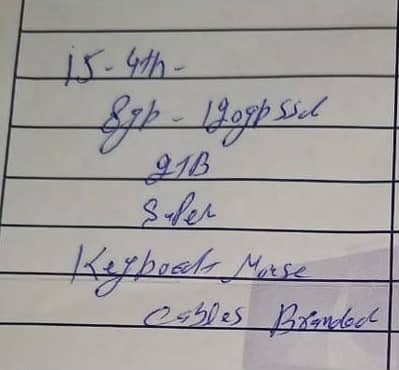 i5 - 4th -
8gb - 120gb SSd
91B
Super
Keyboads Mouse
Cables Branded